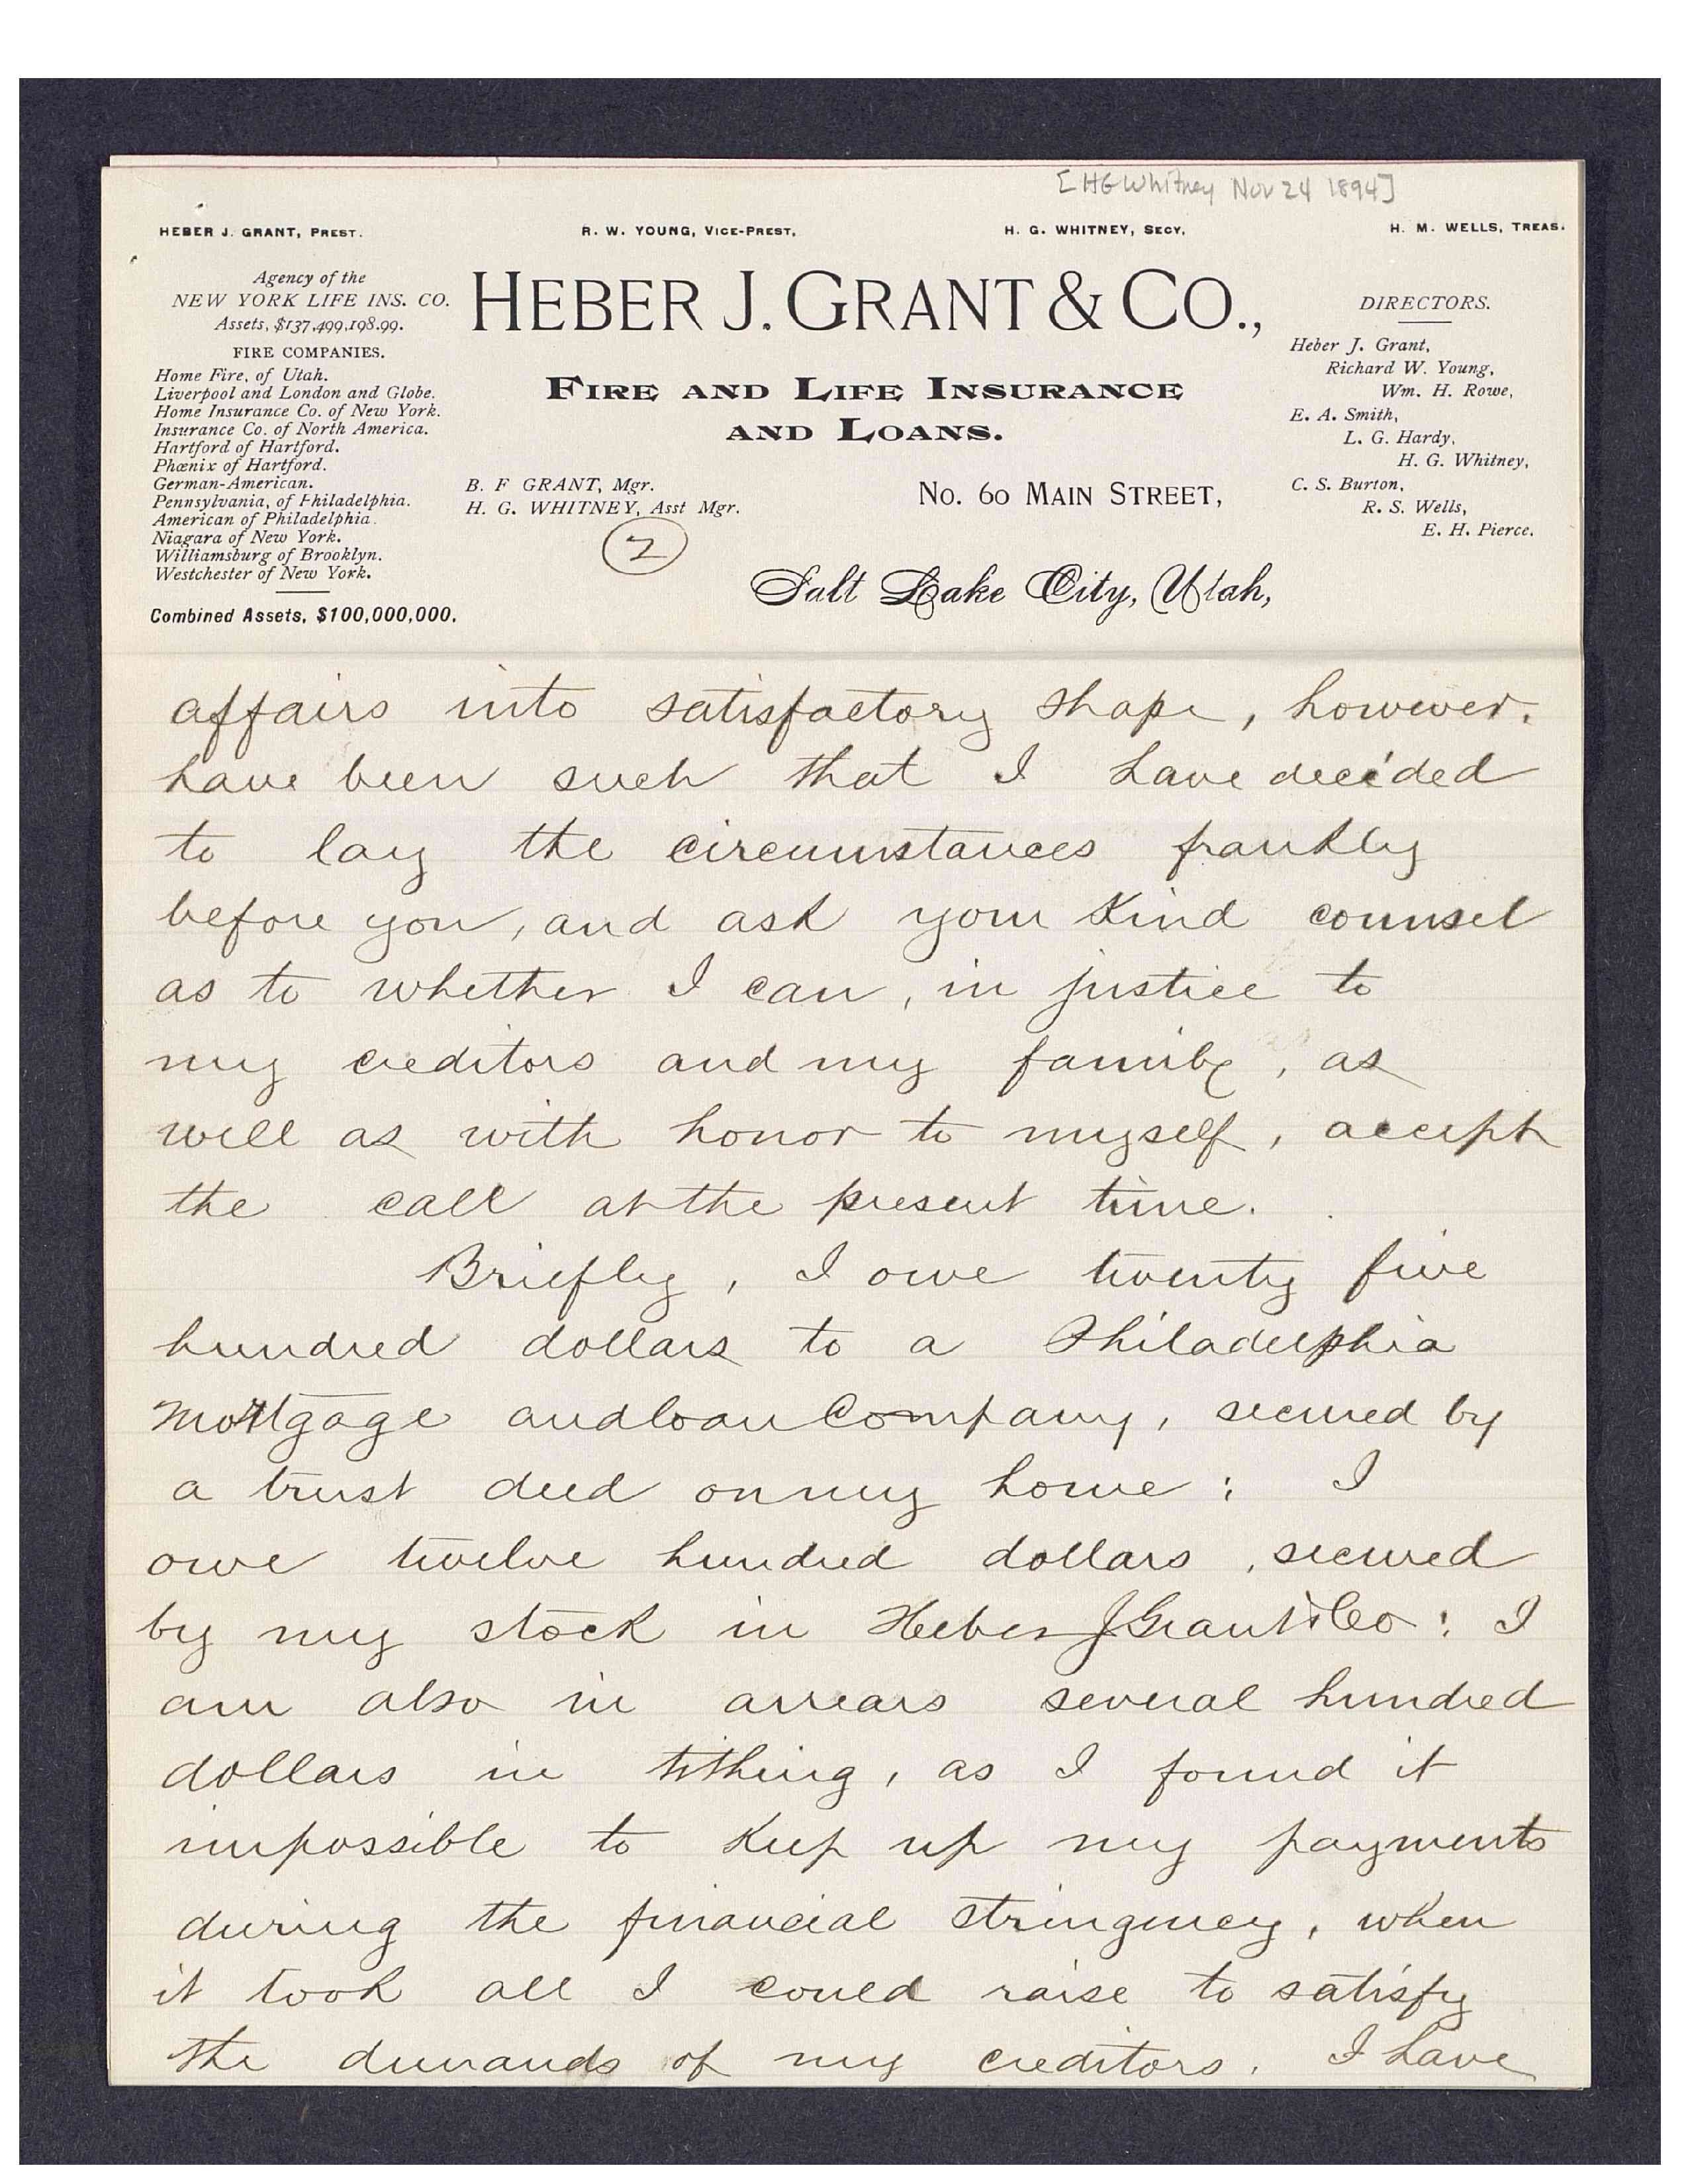 [HGWhitney Nov 24 1894]
HEBER J. GRANT, PREST.
R. W. YOUNG, VICE-PREST.
H. G. WHITNEY, SECY.
H. M. WELLS, TREAS.
Agency of the
NEW YORK LIFE INS. CO.
Assets, $137,499,198.99.
FIRE COMPANIES.
Home Fire, of Utah.
Liverpool and London and Globe.
Home Insurance Co. of New York.
Insurance Co. of North America.
Hartford of Hartford.
Phœnix of Hartford.
German-American.
Pennsylvania, of Philadelphia.
American of Philadelphia.
Niagara of New York.
Williamsburg of Brooklyn.
Westchester of New York.
Combined Assets, $100,000,000.
HEBER J. GRANT & CO.,
FIRE AND LIFE INSURANCE
AND LOANS.
B. F GRANT, Mgr.
H. G. WHITNEY, Asst Mgr.
No. 60 MAIN STREET,
2
Salt Lake City, Utah,
DIRECTORS.
Heber J. Grant,
Richard W. Young,
Wm. H. Rowe,
E. A. Smith,
L. G. Hardy,
H. G. Whitney,
C. S. Burton,
R. S. Wells,
E. H. Pierce.
affairs into satisfactory shape, however,
have been such that I have decided
to lay the circumstances frankly
before you, and ask your kind counsel
as to whether I can, in justice to
my creditors and my family, as
well as with honor to myself, accept
the call at the present time.
Briefly, I owe twenty five
hundred dollars to a Philadelphia
mortgage and loan Company, secured by
a trust deed on my home; I
owe twelve hundred dollars, secured
by my stock in Heber J Grant & Co: I
am also in arrears several hundred
dollars in tithing, as I found it
impossible to keep up my payments
during the financial stringency, when
it took all I could raise to satisfy
the demands of my creditors. I have